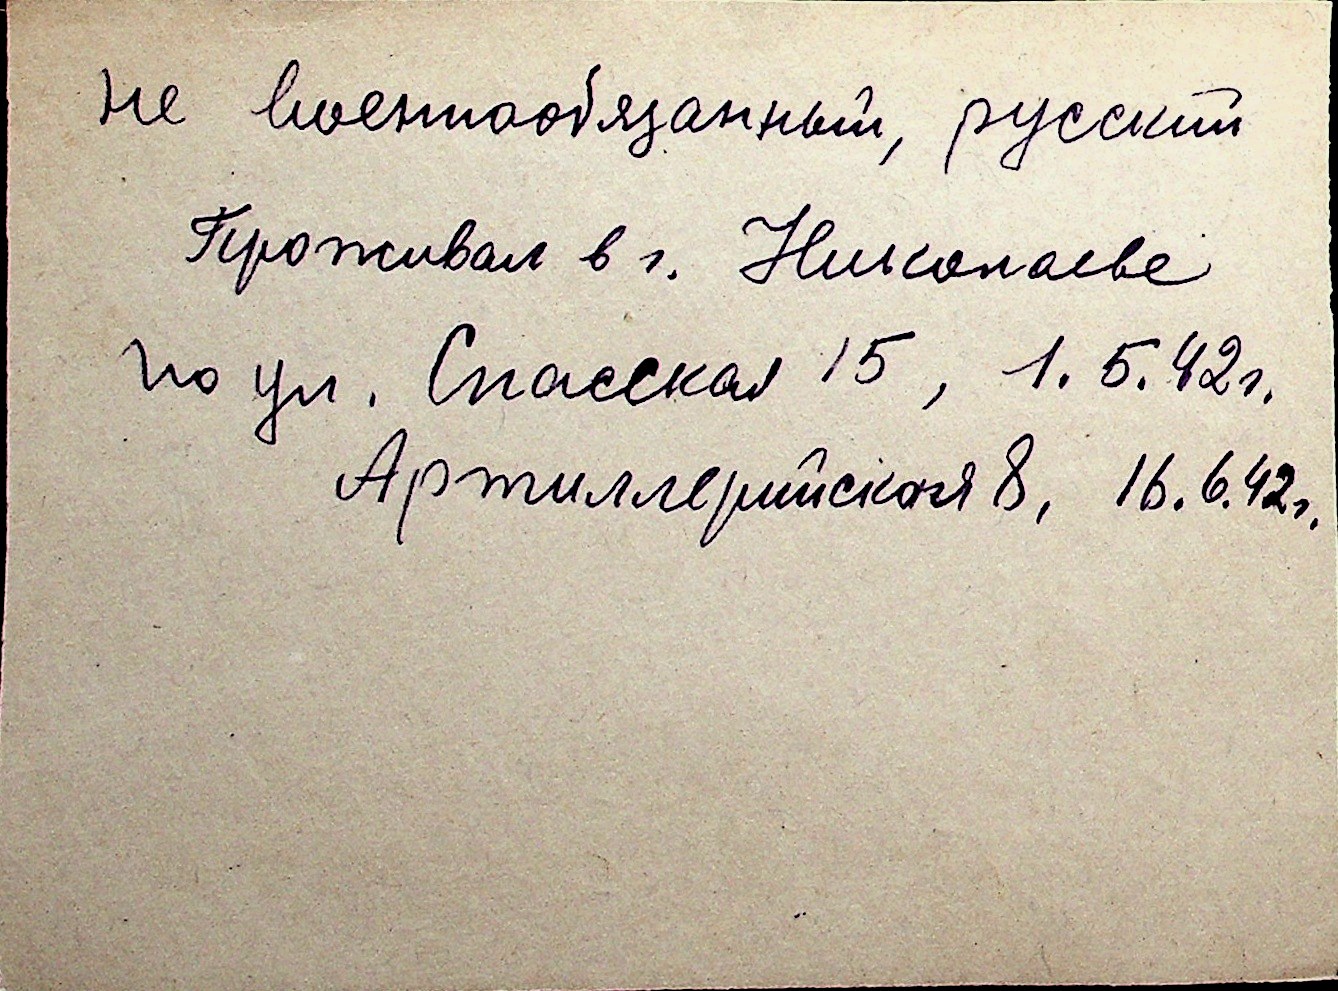 не военнообязанный, русский
Проживал в г. Николаеве
по ул. Спасская 15, 1.5.42г.
Артиллерийская 8, 16.6.42г.